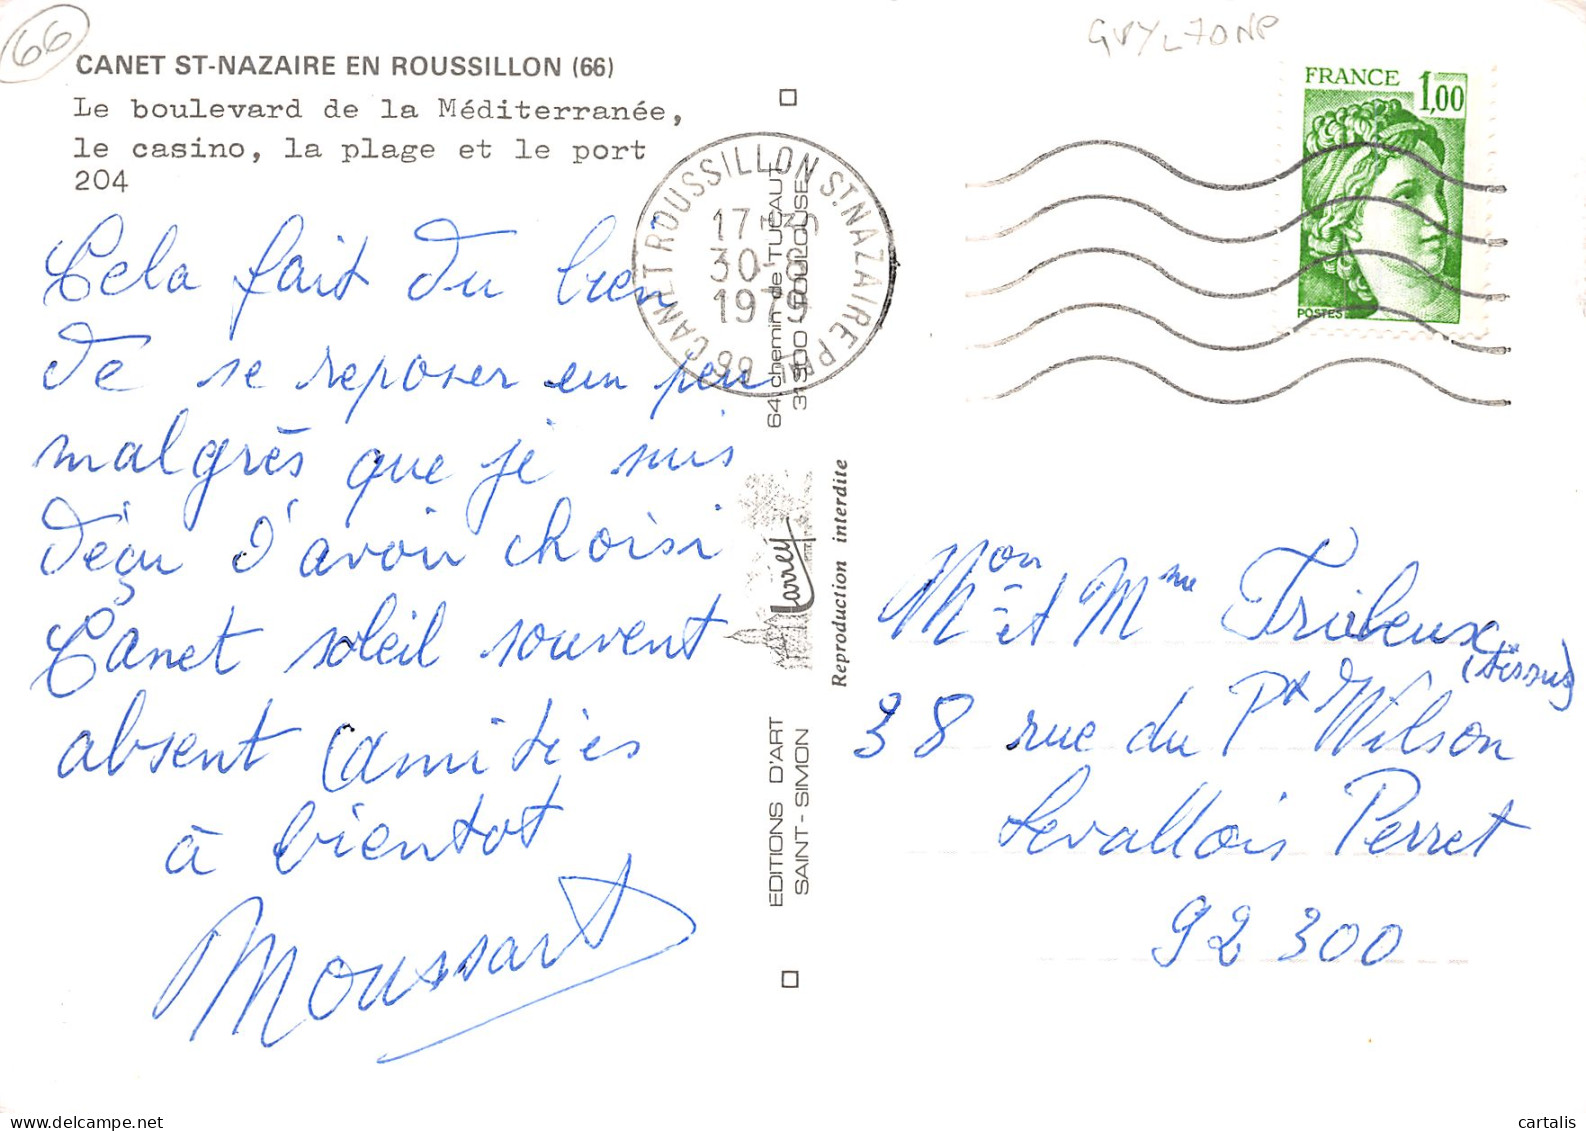 66
CANET ST-NAZAIRE EN ROUSSILLON (66)
Le boulevard de la Méditerranée,
le casino, la plage et le port
204
Cela fait du bien
de se reposer un peu
malgrès que je suis
déçu d'avoir choisi
Canet soleil souvent
absent (amitiés
à bientot
Moussart
66 CANET ROUSSILLON ST. NAZAIRE PPAL
17H30
30-8
1979
64, chemin de TUCAUT
31300 - TOULOUSE
Larrey
Reproduction interdite
EDITIONS D'ART
SAINT-SIMON
FRANCE 1,00
POSTES
Mon
M et Mme Tribeux
(Tissus)
38 rue du Pt Wilson
Levallois Perret
92 300
cartalis
www.delcampe.net